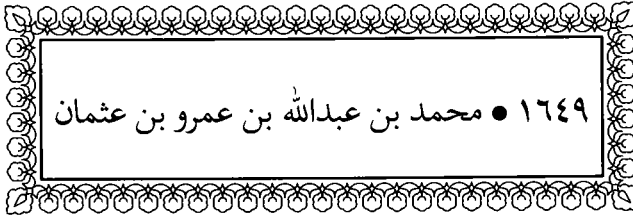 ١٦٤٩ ● محمد بن عبدالله بن عمرو بن عثمان